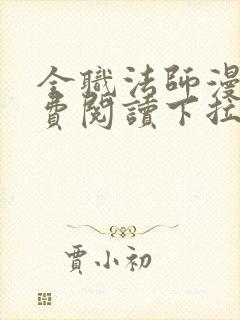 全職法師漫
費閱讀下拉
賈小初